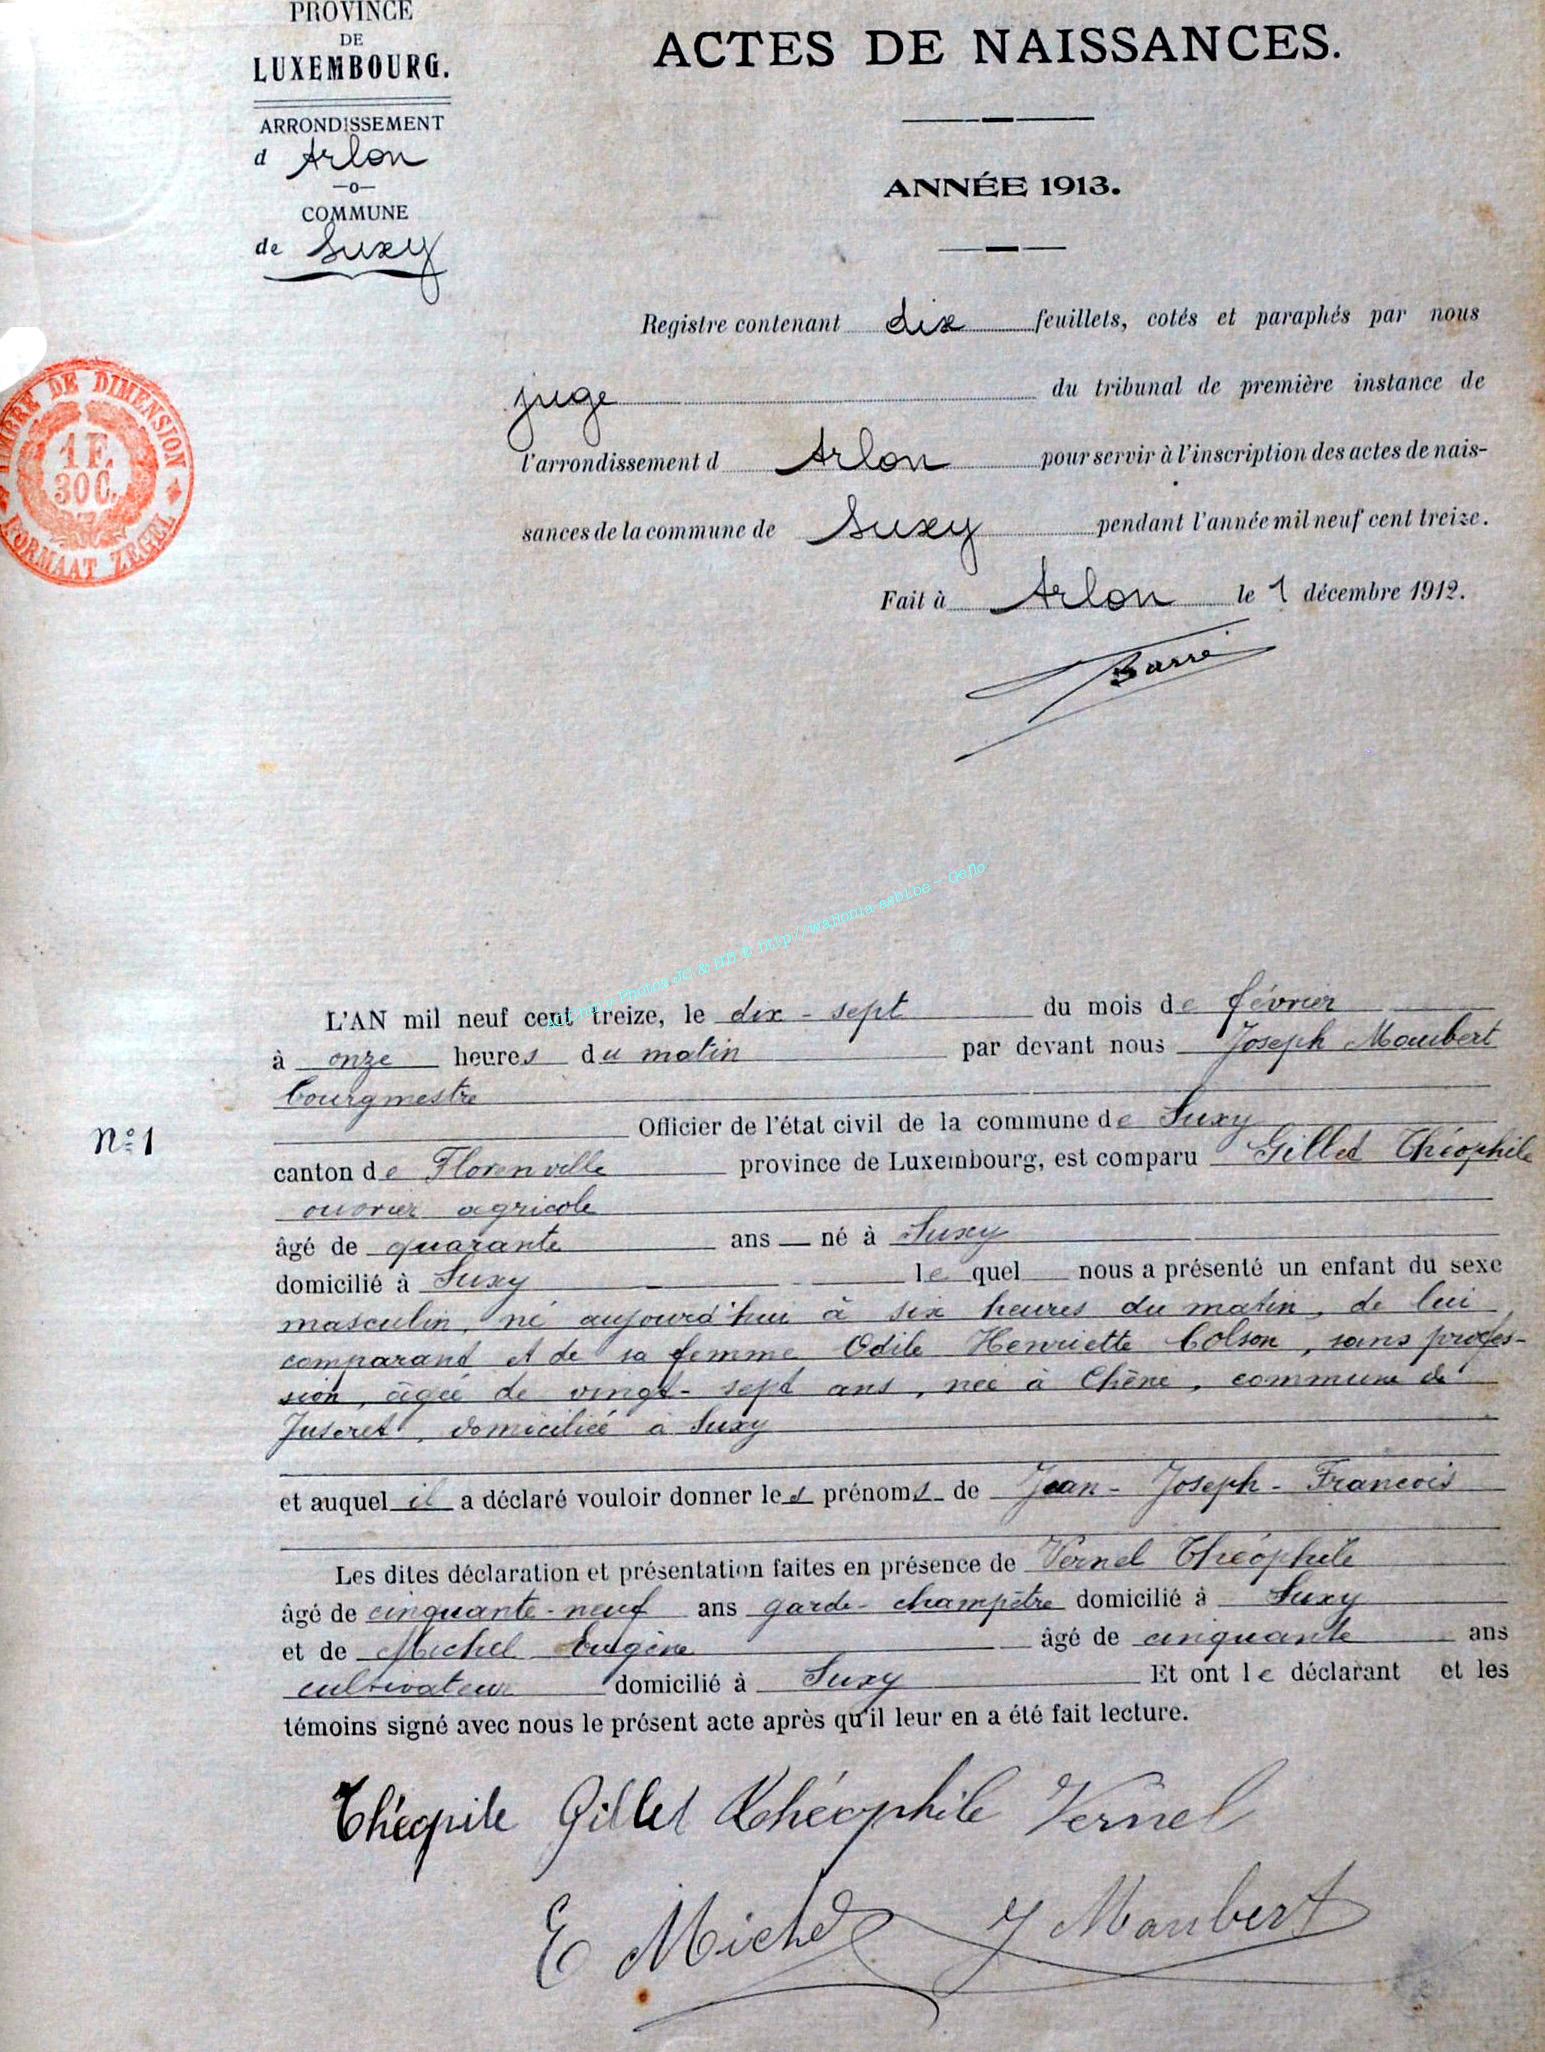 PROVINCE
DE
LUXEMBOURG.
ARRONDISSEMENT
d Arlon
—o—
COMMUNE
de Suxy
ACTES DE NAISSANCES.
ANNÉE 1913.
Registre contenant dix feuillets, cotés et paraphés par nous
juge du tribunal de première instance de
l'arrondissement d Arlon pour servir à l'inscription des actes de nais-
sances de la commune de Suxy pendant l'année mil neuf cent treize.
Fait à Arlon le 1 décembre 1912.
Barré
TIMBRE DE DIMENSION
1 F.
30 C.
FORMAAT ZEGEL
& http://wallonia-asbl.be - Geflo
L'AN mil neuf cent treize, le dix-sept du mois de février
à onze heures du matin par devant nous Joseph Maubert
bourgmestre
Officier de l'état civil de la commune de Suxy
N° 1
canton de Florenville province de Luxembourg, est comparu Gillet Théophile
ouvrier agricole
âgé de quarante ans — né à Suxy
domicilié à Suxy lequel nous a présenté un enfant du sexe
masculin, né aujourd'hui à six heures du matin, de lui
comparant et de sa femme Odile Henriette Colson, sans profes-
sion, âgée de vingt-sept ans, née à Chêne, commune de
Juseret, domiciliée à Suxy
et auquel il a déclaré vouloir donner les prénoms de Jean-Joseph-Francois
Les dites déclaration et présentation faites en présence de Vernel Théophile
âgé de cinquante-neuf ans garde-champêtre domicilié à Suxy
et de Michel Eugène âgé de cinquante ans
cultivateur domicilié à Suxy Et ont le déclarant et les
témoins signé avec nous le présent acte après qu'il leur en a été fait lecture.
Théopile Gillet Théophile Vernel
E Michel J Maubert